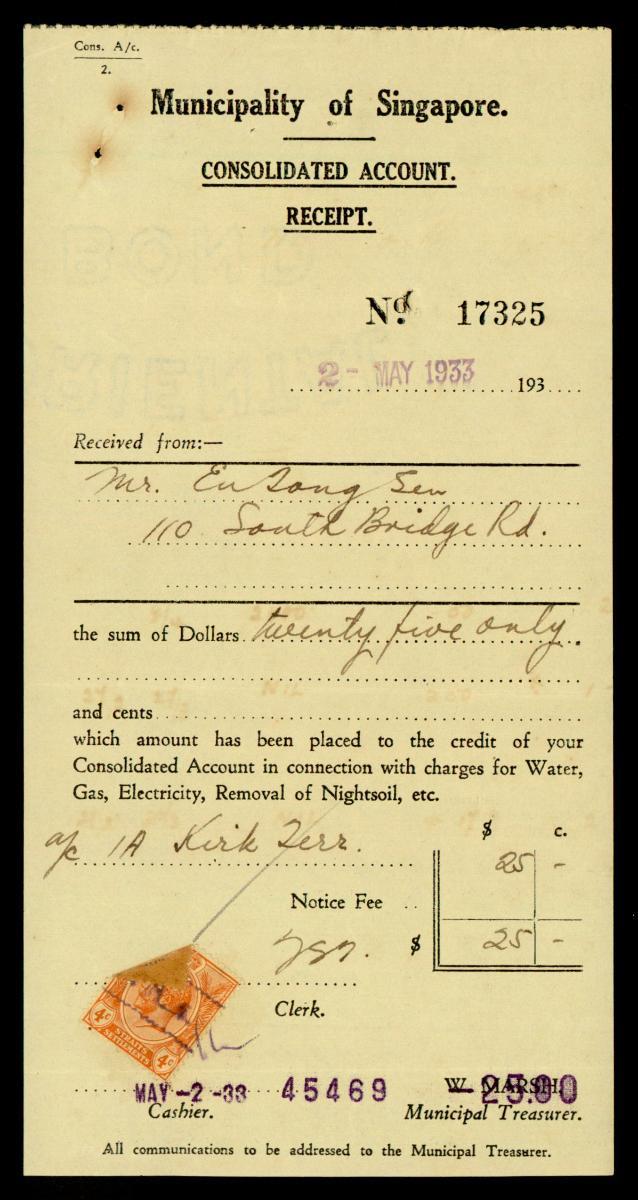 Cons. A/c.
2.
Municipality of Singapore.
CONSOLIDATED ACCOUNT.
RECEIPT.
No. 17325
2 - MAY 1933 193....
Received from:—
Mr. Eu Tong Sen
110 South Bridge Rd.
the sum of Dollars twenty five only.
and cents
which amount has been placed to the credit of your
Consolidated Account in connection with charges for Water,
Gas, Electricity, Removal of Nightsoil, etc.
$ c.
a/c 1A Kirk Terr. 25 -
Notice Fee ..
$ 25 -
Clerk.
4c STRAITS SETTLEMENTS 4c
MAY -2 -33 45469 —25.00
W. MARSH
Cashier. Municipal Treasurer.
All communications to be addressed to the Municipal Treasurer.